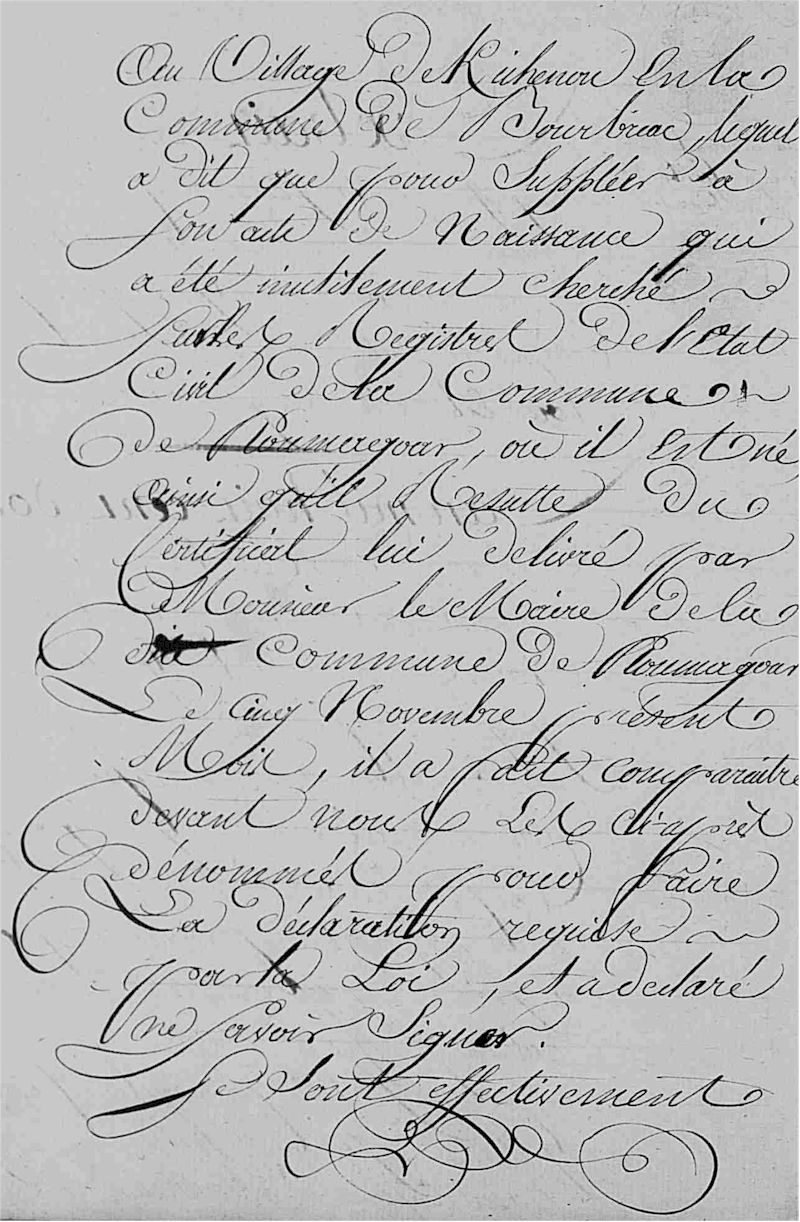 Au Village de Kuhenou En la
Commune de Bourbriac, lequel
a dit que pour Suppléer à
Son acte de Naissance qui
a été inutilement cherché
Sur les Registres de l'Etat
Civil de la Commune
de Ploumagoar, où il Est né,
ainsi qu'il Résulte du
Certificat lui délivré par
Monsieur le Maire de la
dite Commune de Ploumagoar
Le cinq Novembre présent
Mois, il a fait comparaître
devant nous Les ci-après
dénommés pour faire
La déclaration requise
par la Loi, et a déclaré
ne Savoir Signer.
Se Sont effectivement